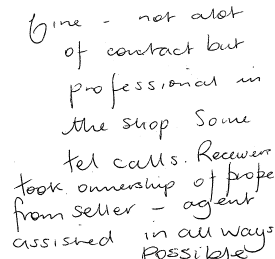 Fine - not alot
of contact but
professional in
the shop Some
tel calls. Receivers
took ownership of prope
from seller - agent
assisted in all ways
possible